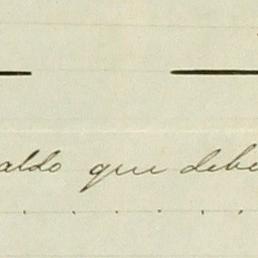 aldo que debe